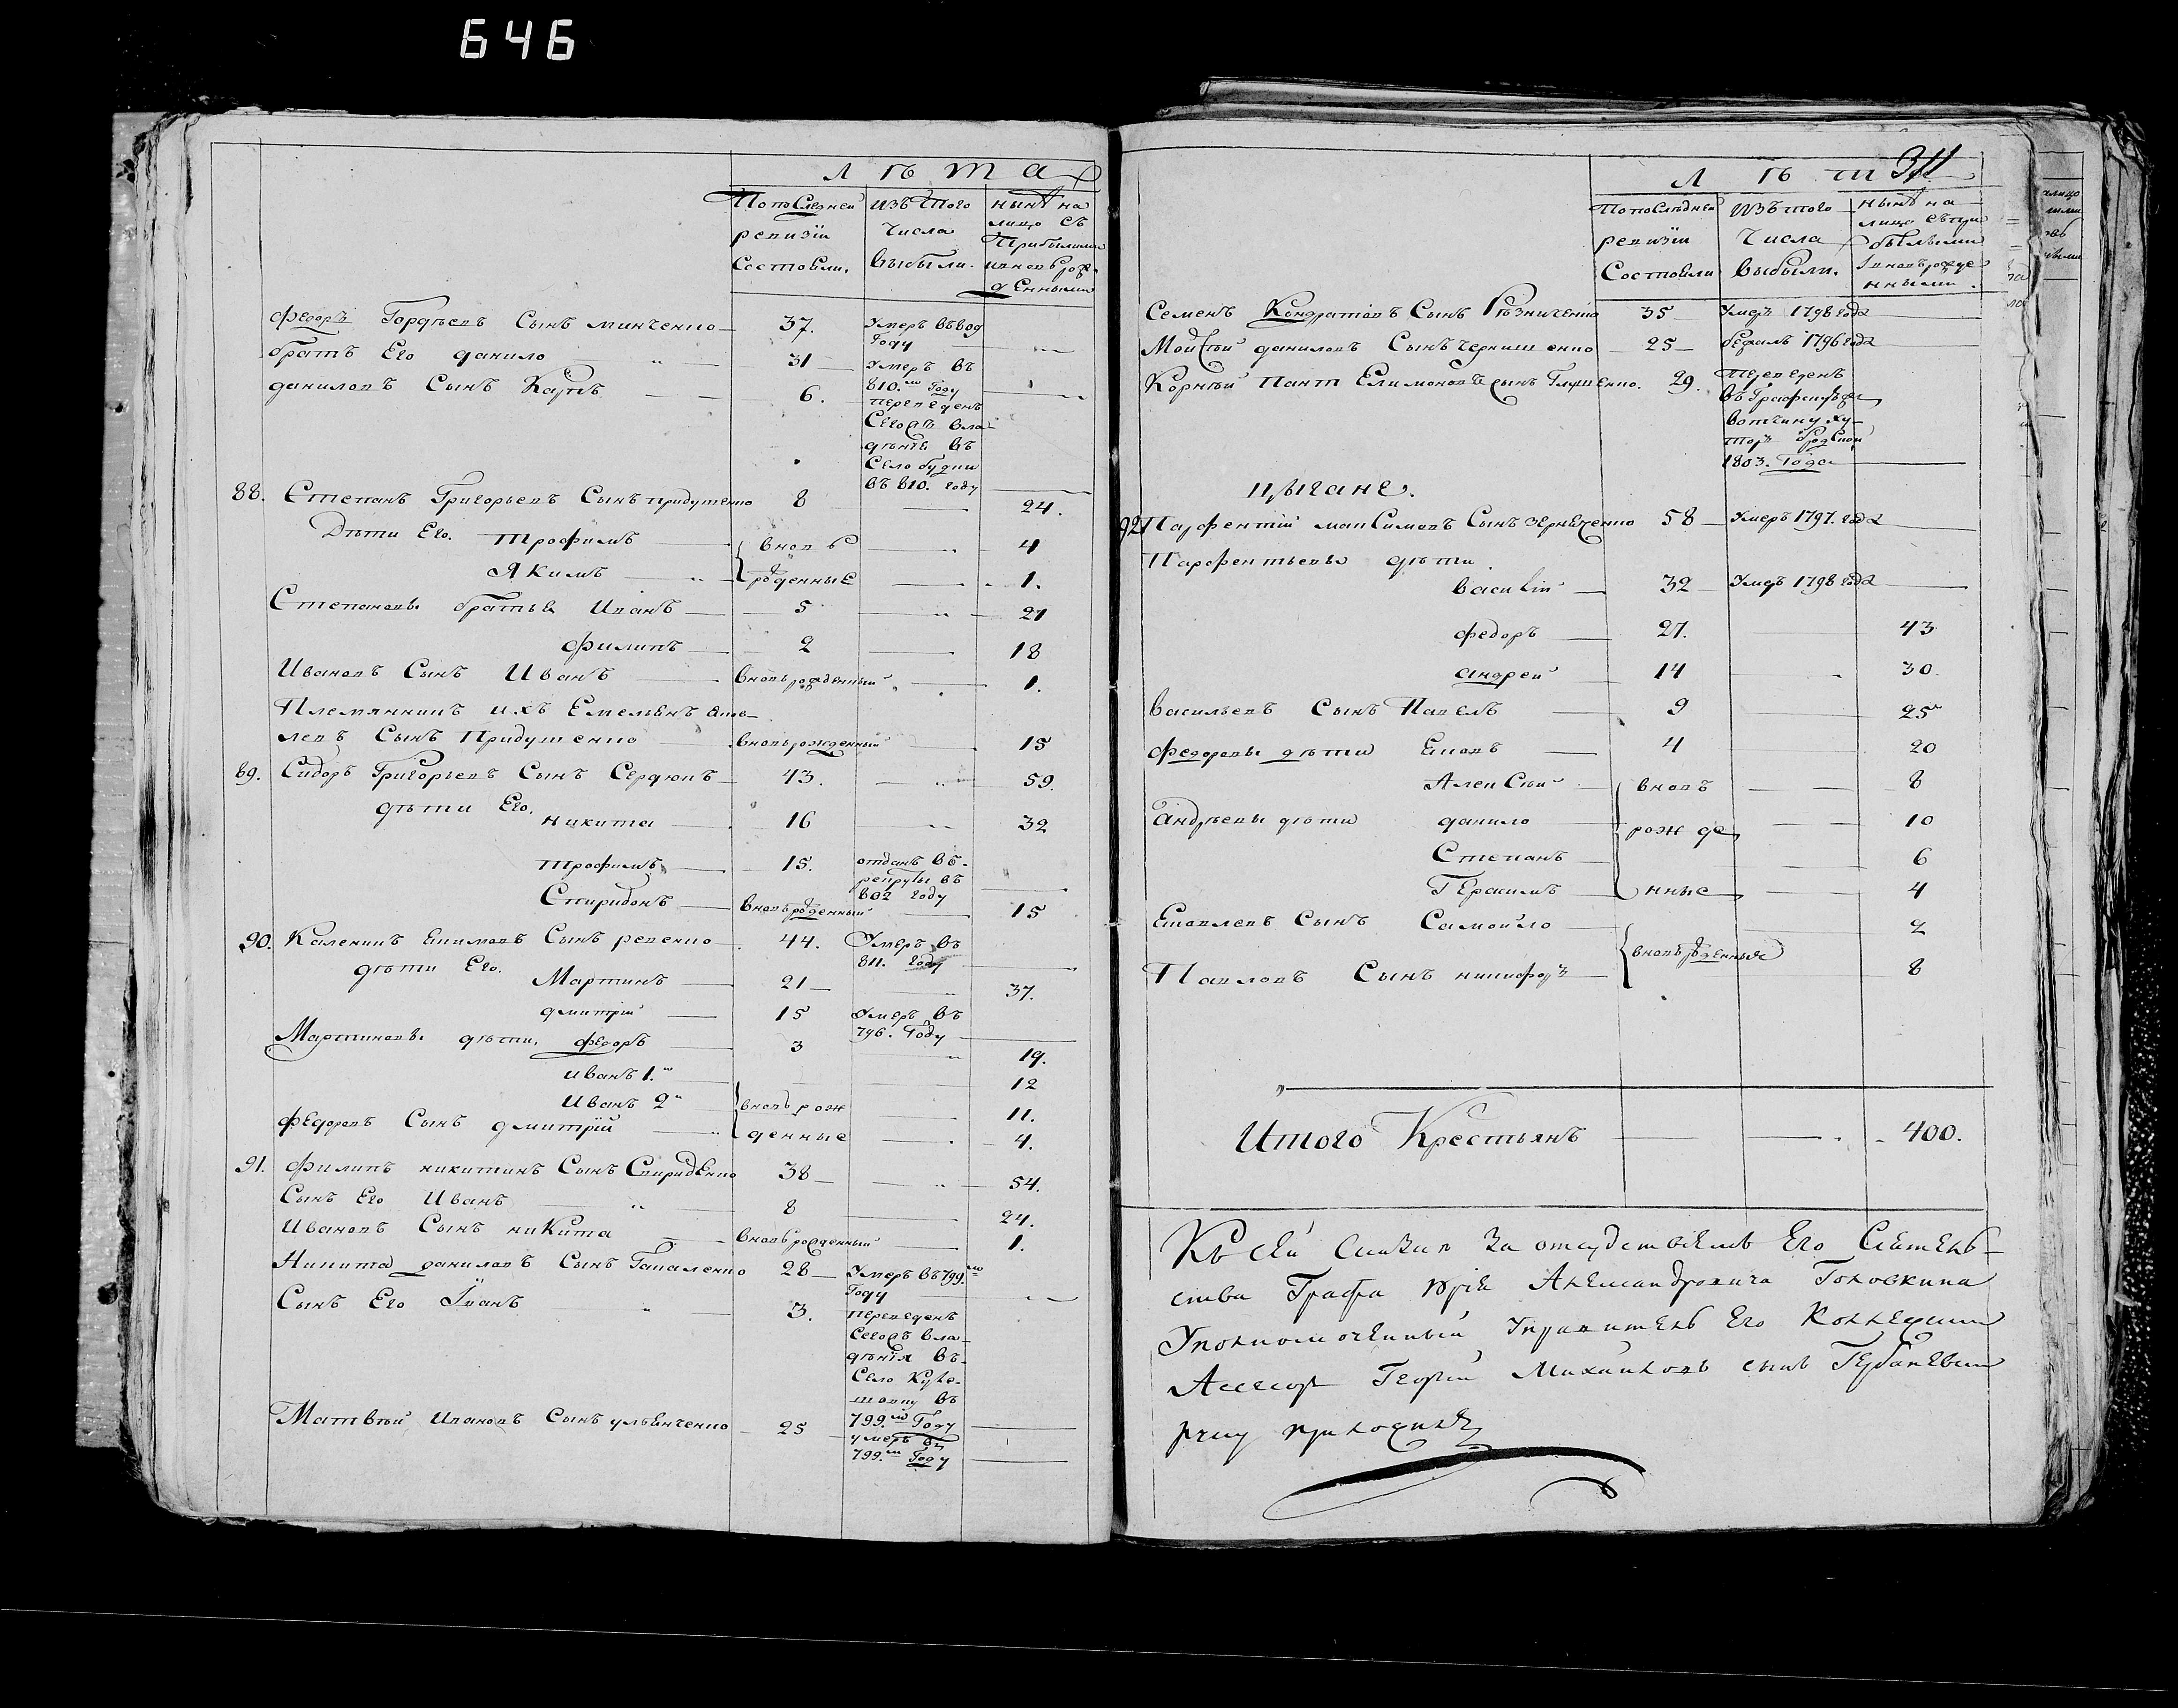 646
Лѣта
Попоследней изъ того нынѣ на
ревизіи числа лицо съ
Прибылыми
Состояли. выбыли. ивновь рож
денными
Федоръ Гордѣевъ Сынъ минченко 37. Умеръ въ 809
Году
братъ Его данило 31 Умеръ въ
810.м Году
даниловъ Сынъ Карпъ 6. переведенъ
Сегожъ вла
дѣнія въ
Село будки
въ 810. году
88. Степанъ Григорьевъ Сынъ придущенко 8 24.
Дѣти Его. трофимъ вновь 4
Якимъ рожденные 1.
Степановы братья Иванъ 5 21
филипъ 2 18
Ивановъ Сынъ Иванъ вновь рожденный 1.
Племянникъ ихъ Емельянъ Яков
левъ Сынъ Придущенко вновьрожденный 15
89. Сидоръ Григорьевъ Сынъ Сердюкъ 43. 59.
дѣти Его. никита 16 32
трофимъ 15. отданъ въ
рекруты въ
802 году
Спиридонъ вновьрожденный 15
90. Каленикъ Екимовъ Сынъ ревенко 44. Умеръ въ
811. году
дѣти Его. Мартинъ 21 37.
дмитрій 15 Умеръ въ
796. Году
Мартиновы дѣти. федоръ 3 19.
иванъ 1.й 12
Иванъ 2й вновь рож 11.
федоровъ Сынъ дмитрій денные 4.
91. филипъ никитинъ Сынъ Спириденко 38 54.
Сынъ Его Иванъ 8 24.
Ивановъ Сынъ никита вновь рожденный 1.
Никита даниловъ Сынъ Гапаленко 28 Умеръ въ 799.м
Году
Сынъ Его Іванъ 3. переведенъ
Сегожъ вла
дѣнія въ
Село
въ
799.м Году
Матвѣй Ивановъ Сынъ ульянченко 25 умеръ въ
799.м Году
311
Лѣт
Попослѣдней изъ того нынѣ на
ревизіи числа лицо съ при
былыми
Состояли выбыли. Івновь рожде
нными.
Семенъ Кондратовъ Сынъ Рѣзниченко 35 Умеръ 1798 года
Мойсѣй даниловъ Сынъ чернищенко 25 бежалъ 1796 года
Корнѣй Пантелимоновъ сынъ Глущенко. 29. переведенъ
въ Графскую же
вотчину ху
торъ
1803. Года
цыгане.
92 Парфентій максимовъ Сынъ 58 Умеръ 1797. года
Парфентьевы дѣти.
василій 32 Умеръ 1798 года
федоръ 27. 43
андрей 14 30.
васильевъ Сынъ Павелъ 9 25
федоровы дѣти Яковъ 4 20
Алексѣй вновь 8
андрѣевы дѣти данило рожде 10
Степанъ 6
Герасимъ нные 4
Яковлевъ Сынъ Самойло 2
вновьрожденныя
Павловъ Сынъ никифоръ 8
Итого Крестьянъ 400.
Къ сей Сказке За отсудствіемъ Его Сіятель
ства Графа Юрія Александровича Головкина
Уполномоченный Управитель Его Коллежский
Асесоръ Георгій Михайловъ сынъ
руку приложилъ